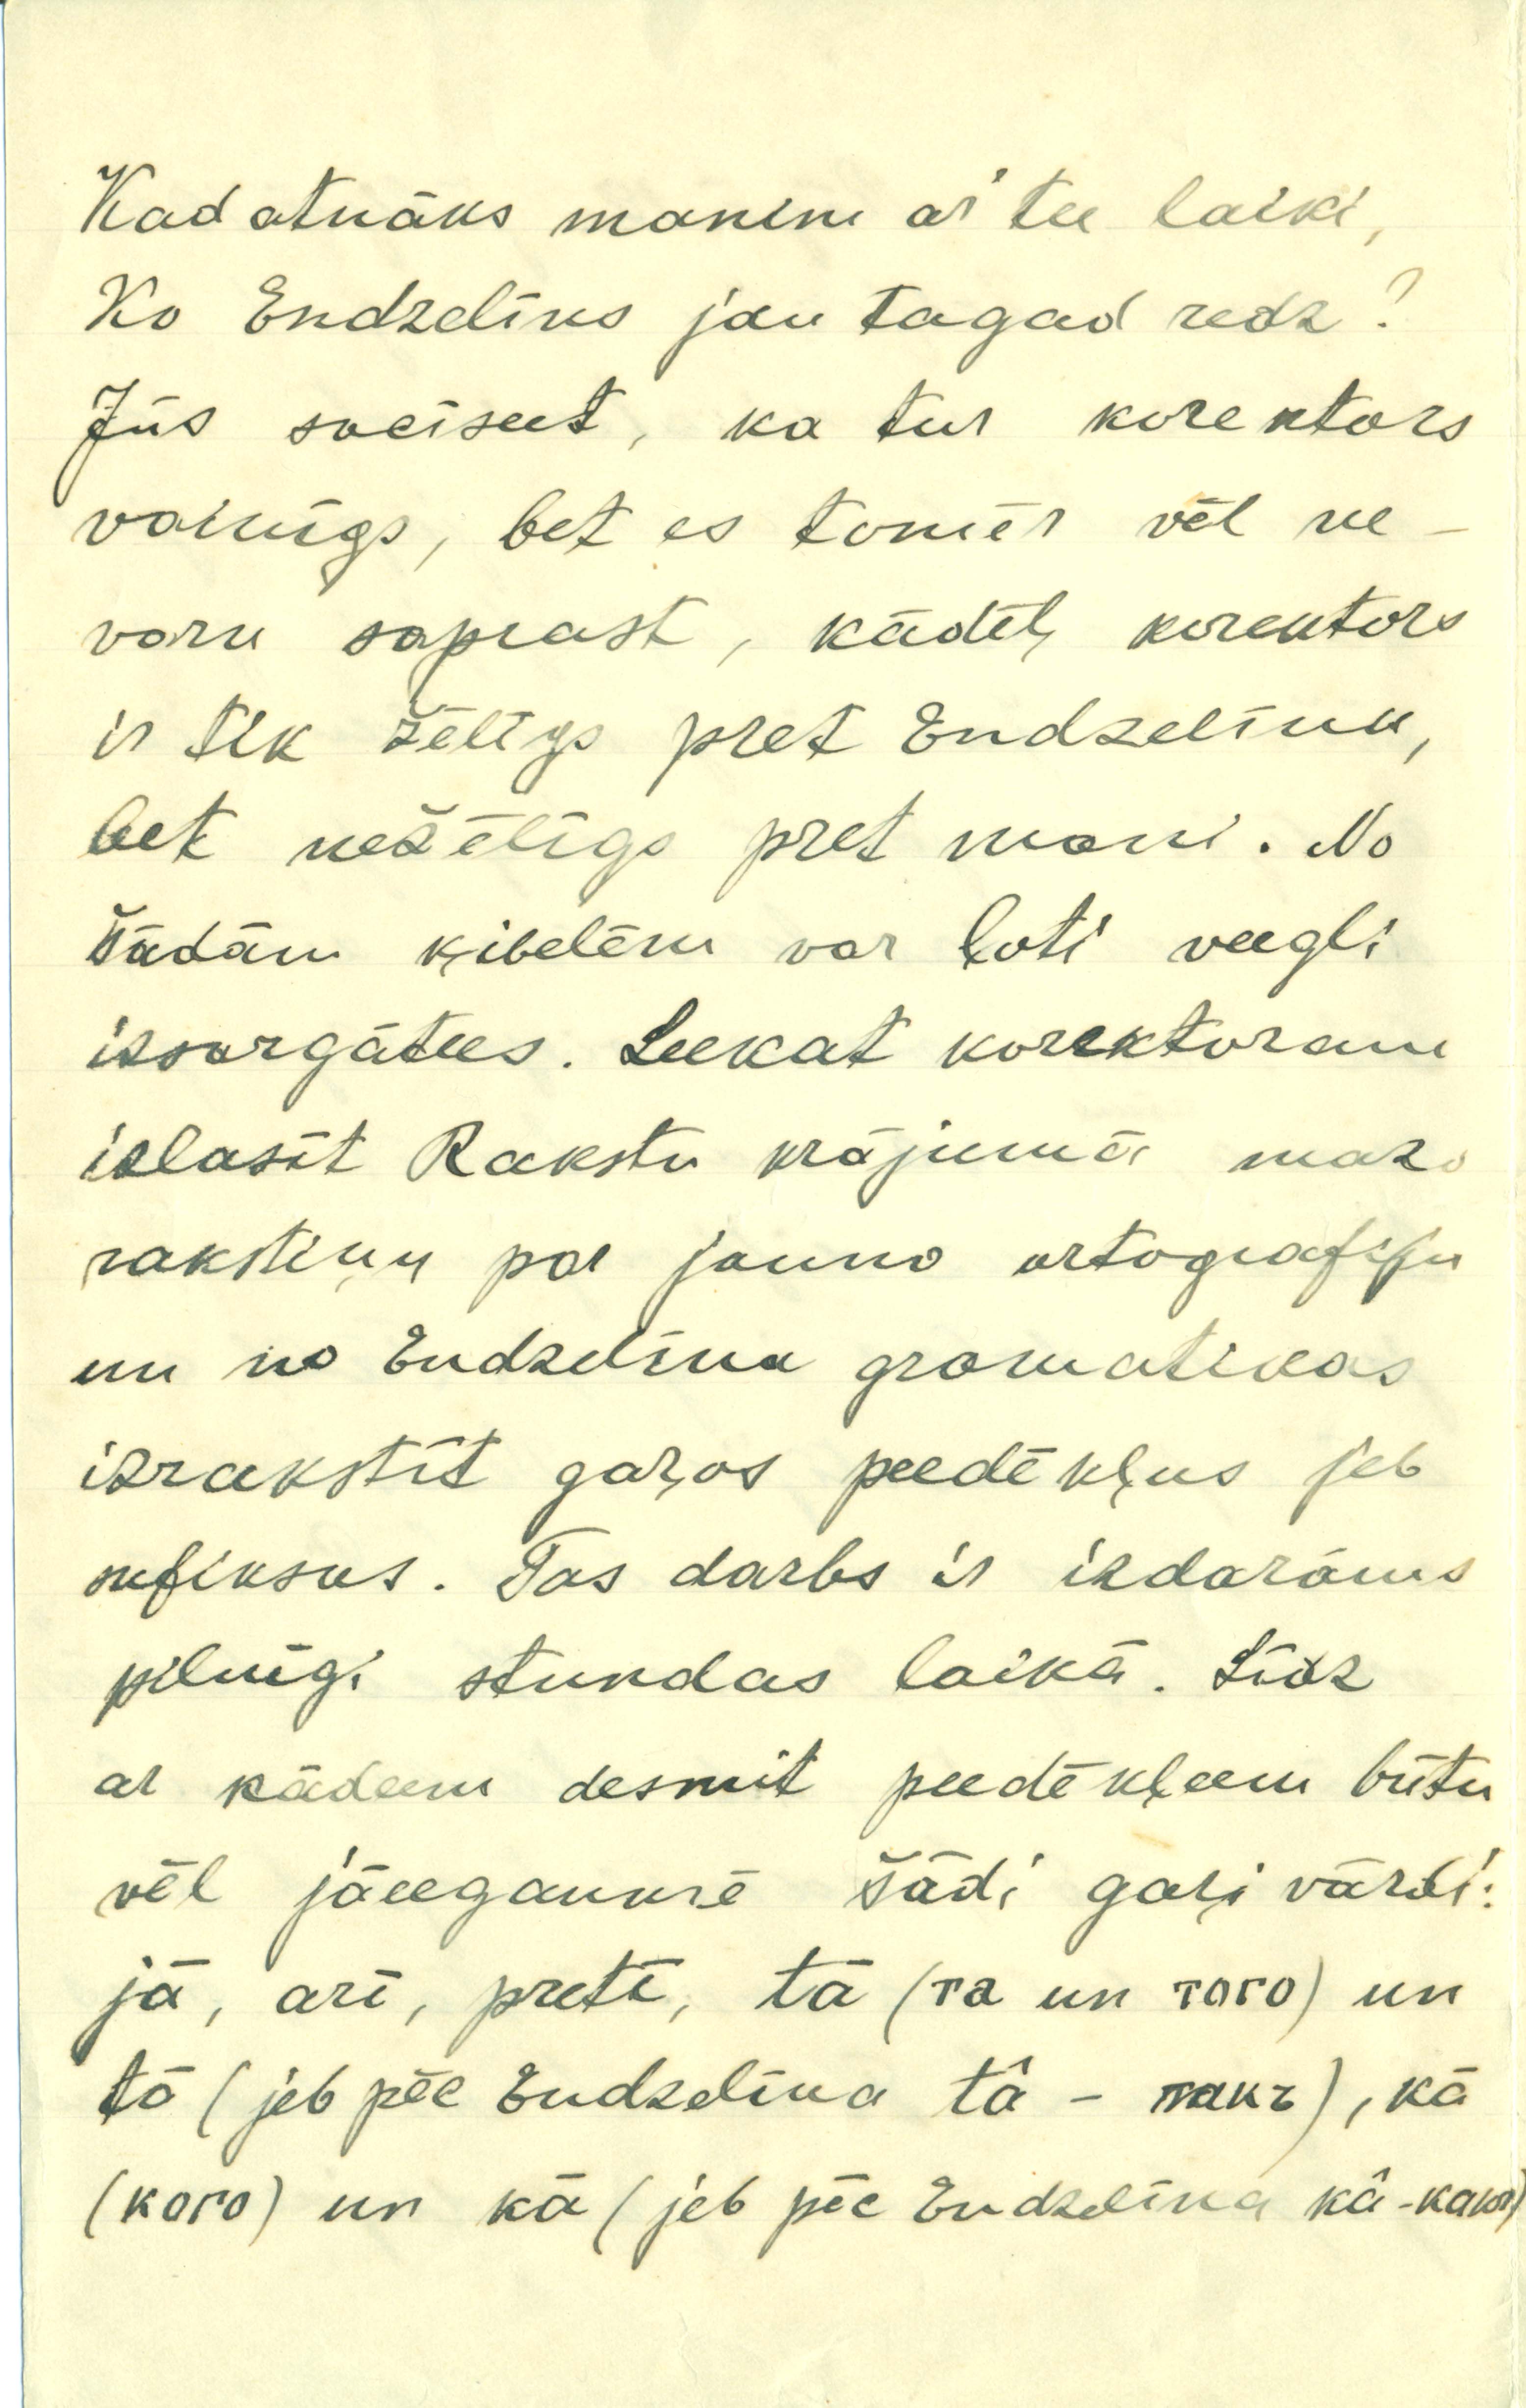 Kad atnāks manim ar tee laiki,
Ko Endzelīns jau tagad redz?
Jūs sacīseet, ka tur korektors
vainīgs, bet es tomēr vēl ne-
varu saprast, kādēļ korektors
ir tik žēlīgs pret Endzelīnu,
bet nežēlīgs pret mani. No
šādām ķibelēm var ļoti veegli
issargātees. Leekat korektoram
islasīt Rakstu krājumā mazo
rakstiņu par jauno ortografiju
un no Endzelīna gramatikas
izrakstīt gaŗos peedēkļus jeb
sufiksus. Tas darbs ir izdarāms
pilnīgi stundas laikā. Līdz
ar kādeem desmit peedēkļeem būtu
vēl jāeegaumē šādi gaŗi vārdi:
jā, arī, pretī, tā (та un того) un
tā (jeb pēc Endzelīna tâ - такъ), kā
(кого) un kā (jeb pēc Endzelīna kâ - какъ)